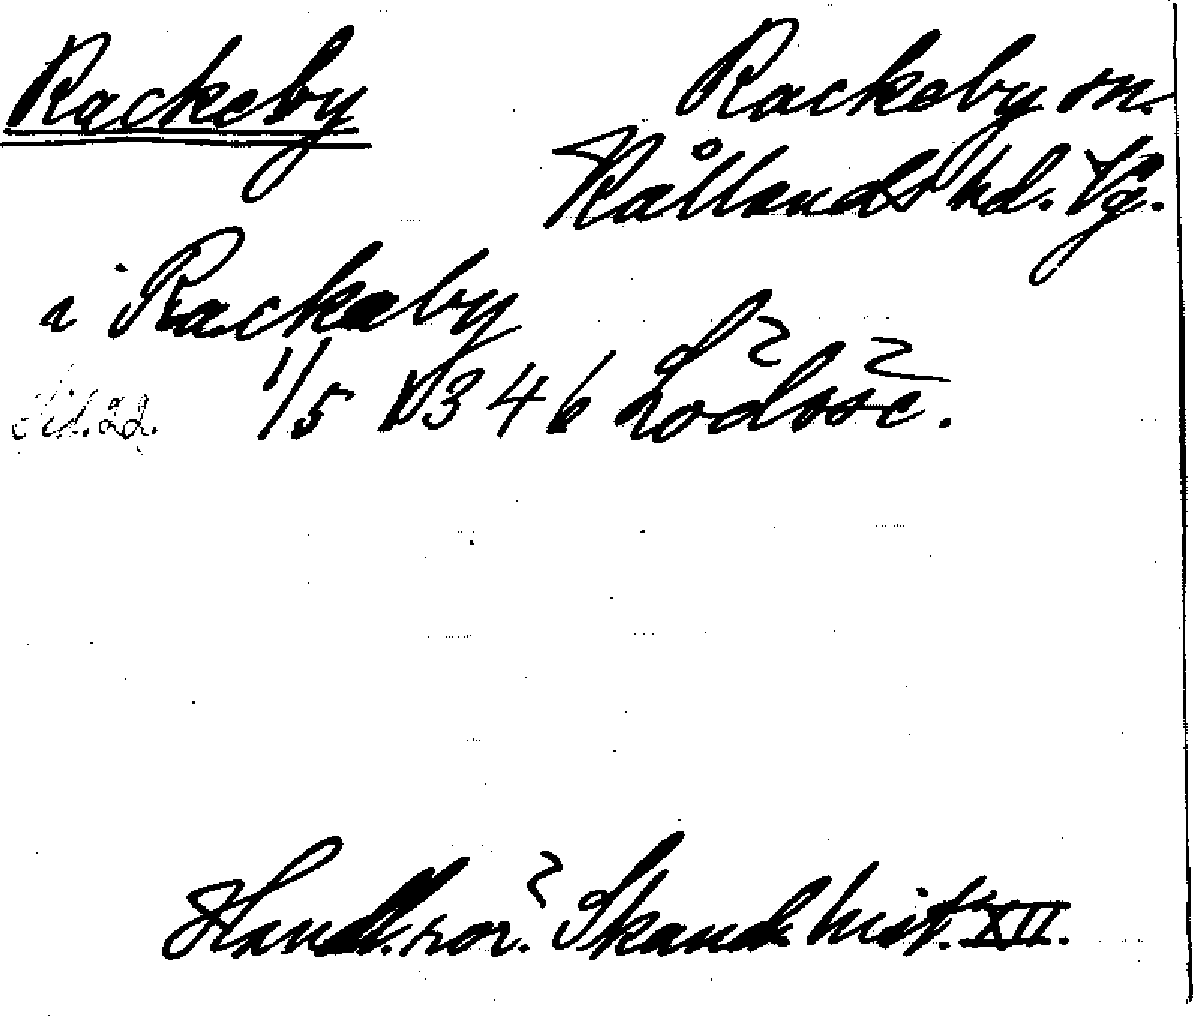 Rackeby
Rackeby sn.
Kållands hd. Vg.
i Rackeby
1/5 1346 Lödöse.
Handl. rör. Skand. hist. XII.